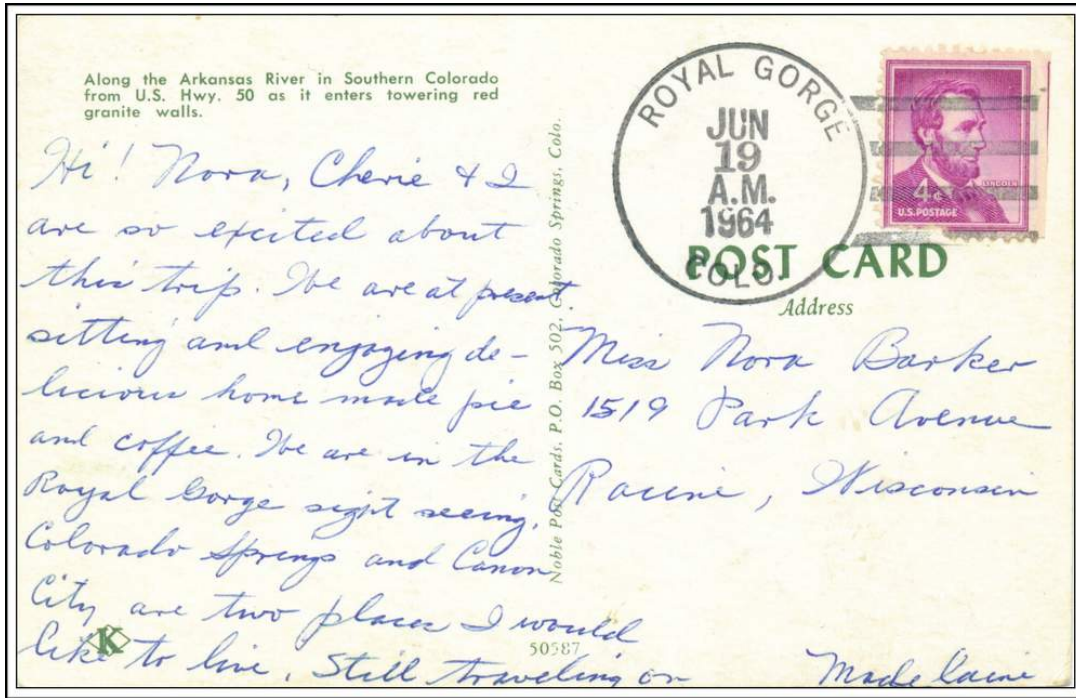 Along the Arkansas River in Southern Colorado
from U.S. Hwy. 50 as it enters towering red
granite walls.
Hi! Nora, Cherie & I
are so excited about
this trip. We are at present
sitting and engaging de-
licious home made pie
and coffee. We are in the
Royal Gorge sight seeing.
Colorado Springs and Canon
City are two places I would
like to live. Still traveling on
Madelaine
K
50587
Noble Post Cards, P.O. Box 502, Colorado Springs, Colo.
ROYAL GORGE
JUN
19
A.M.
1964
COLO.
4¢
LINCOLN
U.S. POSTAGE
POST CARD
Address
Miss Nora Barker
1519 Park Avenue
Racine, Wisconsin